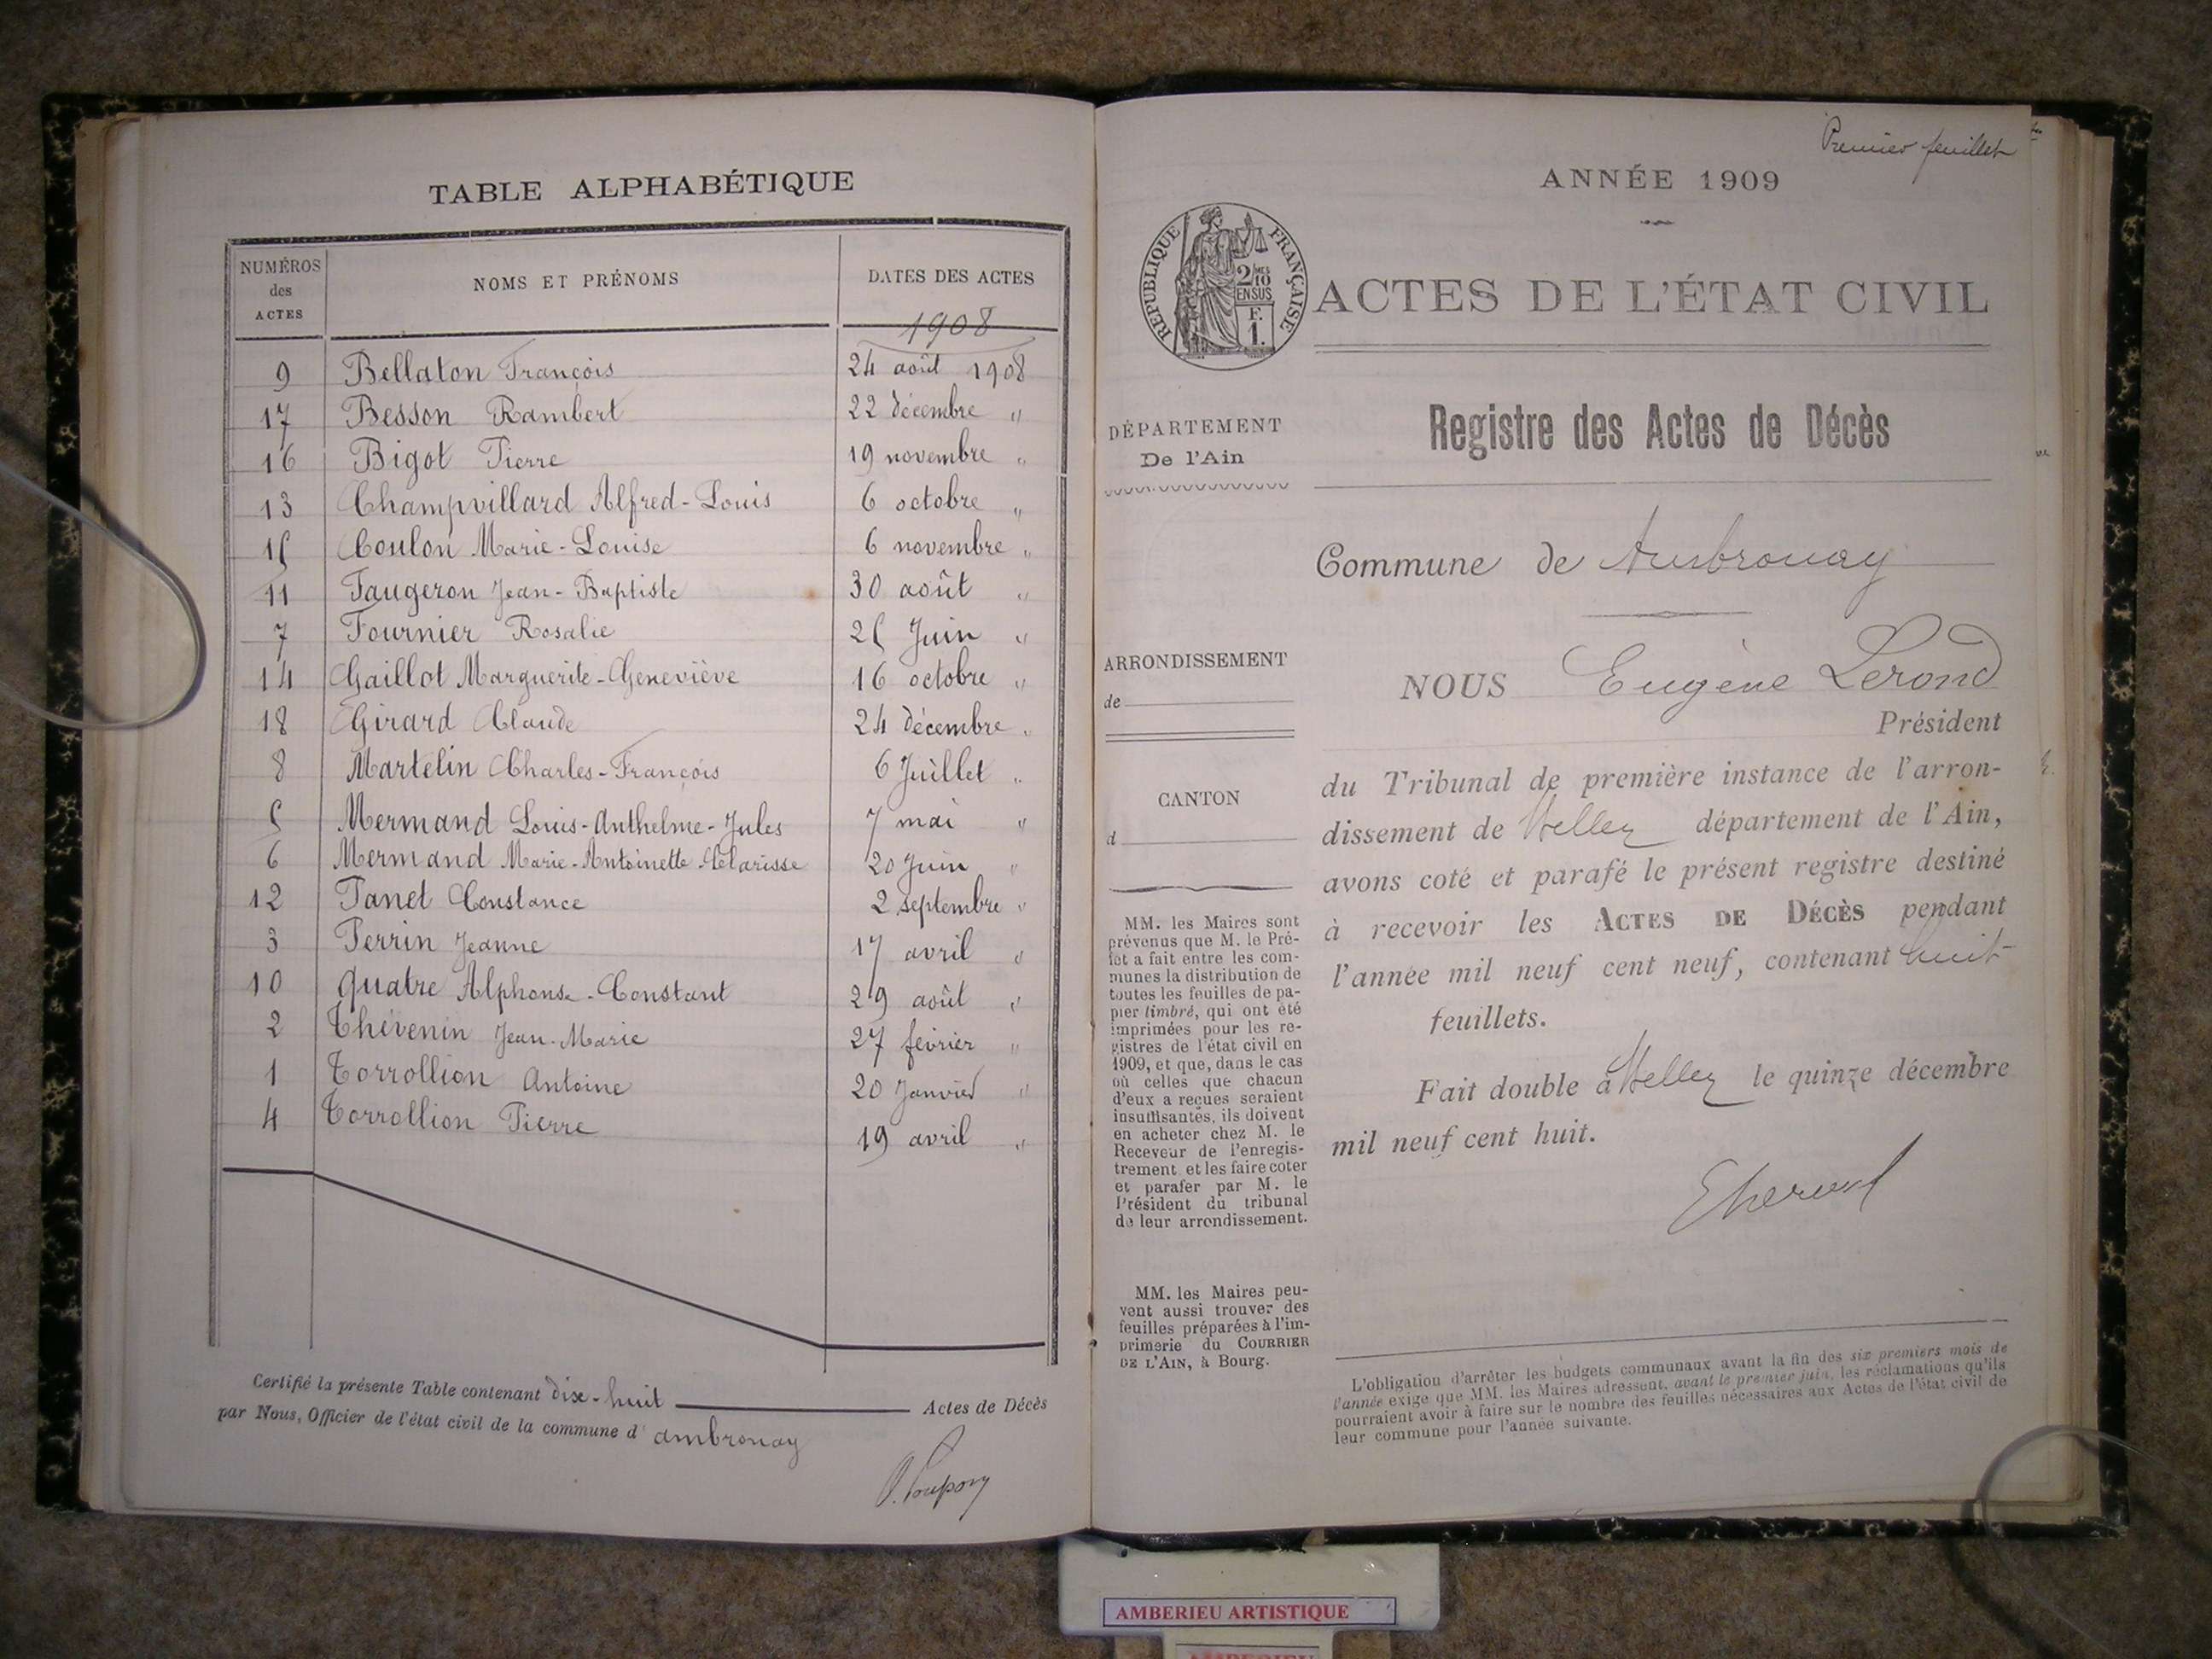 TABLE ALPHABÉTIQUE
NUMÉROS des ACTES
NOMS ET PRÉNOMS
DATES DES ACTES
1908
9 Bellaton François 24 août 1908
17 Besson Rambert 22 décembre "
16 Bigot Pierre 19 novembre "
13 Champvillard Alfred-Louis 6 octobre "
15 Coulon Marie-Louise 6 novembre "
11 Faugeron Jean-Baptiste 30 août "
7 Fournier Rosalie 25 Juin "
14 Gaillot Marguerite-Geneviève 16 octobre "
18 Girard Claude 24 décembre "
8 Martelin Charles-François 6 Juillet "
5 Mermand Louis-Anthelme-Jules 7 mai "
6 Mermand Marie-Antoinette-Clarisse 20 Juin "
12 Panet Constance 2 septembre "
3 Perrin Jeanne 17 avril "
10 Quatre Alphonse-Constant 29 août "
2 Thévenin Jean-Marie 27 février "
1 Torrollion Antoine 20 Janvier "
4 Torrollion Pierre 19 avril "
Certifié la présente Table contenant dix-huit Actes de Décès
par Nous, Officier de l'état civil de la commune d'ambronay
Premier feuillet
ANNÉE 1909
RÉPUBLIQUE FRANÇAISE
2/10 EN SUS
F. 1.
ACTES DE L'ÉTAT CIVIL
DÉPARTEMENT
De l'Ain
Registre des Actes de Décès
Commune de Ambronay
ARRONDISSEMENT
de
CANTON
d
MM. les Maires sont
prévenus que M. le Pré-
fet a fait entre les com-
munes la distribution de
toutes les feuilles de pa-
pier timbré, qui ont été
imprimées pour les re-
gistres de l'état civil en
1909, et que, dans le cas
où celles que chacun
d'eux a reçues seraient
insuffisantes, ils doivent
en acheter chez M. le
Receveur de l'enregis-
trement et les faire coter
et parafer par M. le
Président du tribunal
de leur arrondissement.
MM. les Maires peu-
vent aussi trouver des
feuilles préparées à l'im-
primerie du COURRIER
DE L'AIN, à Bourg.
NOUS Eugène Lerond
Président
du Tribunal de première instance de l'arron-
dissement de Belley département de l'Ain,
avons coté et parafé le présent registre destiné
à recevoir les ACTES DE DÉCÈS pendant
l'année mil neuf cent neuf, contenant huit
feuillets.
Fait double à Belley le quinze décembre
mil neuf cent huit.
L'obligation d'arrêter les budgets communaux avant la fin des six premiers mois de
l'année exige que MM. les Maires adressent, avant le premier juin, les réclamations qu'ils
pourraient avoir à faire sur le nombre des feuilles nécessaires aux Actes de l'état civil de
leur commune pour l'année suivante.
AMBERIEU ARTISTIQUE
AMBERIEU